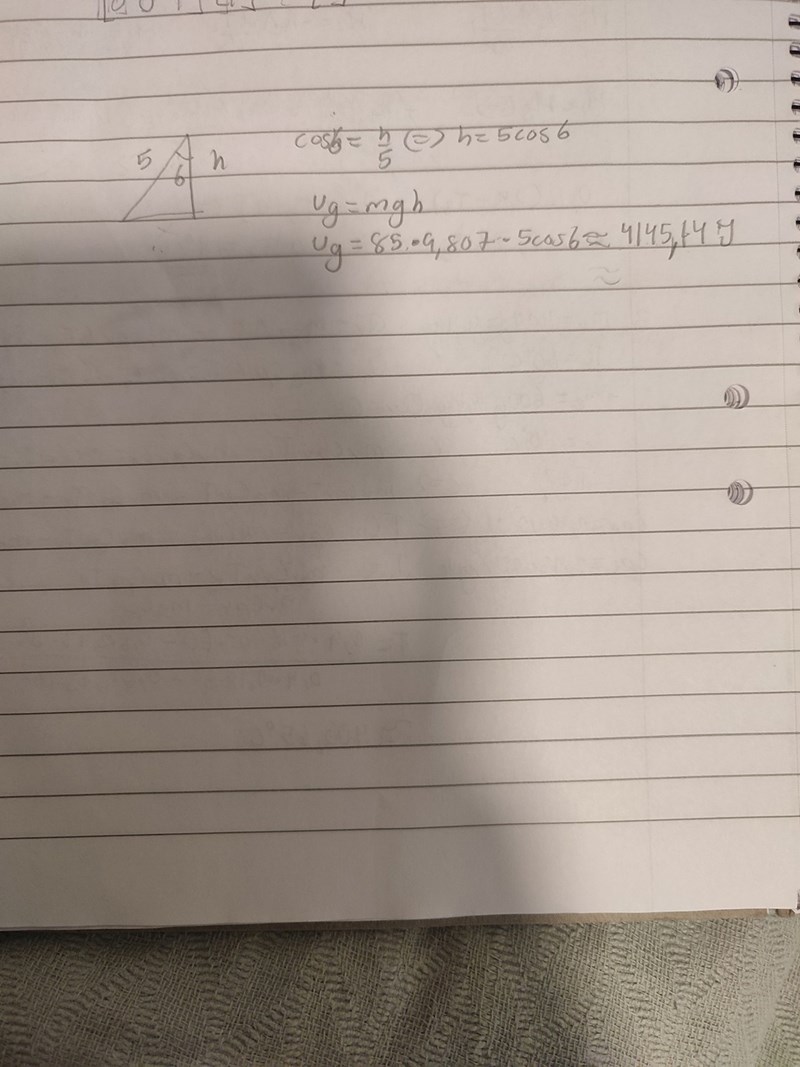 5 h
6
cos6 = h/5 (=) h = 5cos6
Ug = mgh
Ug = 85 · 9,807 · 5cos6 ≈ 4145,14 J
≈